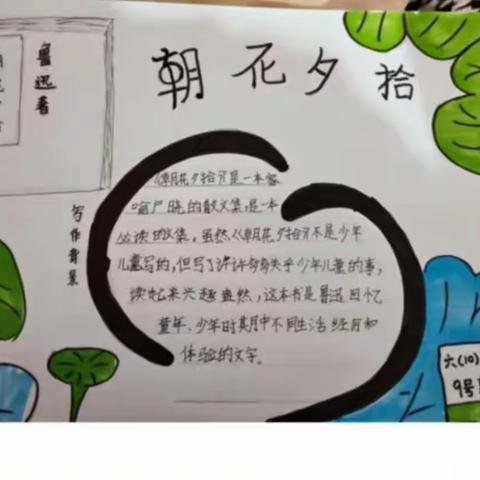 朝花夕拾
鲁迅著
写作背景
《朝花夕拾》是一本家
喻户晓的散文集,是一本
必读的文集。虽然《朝花夕拾》不是少年
儿童写的,但写了许许多多关乎少年儿童的事,
读起来兴趣盎然,这本书是鲁迅回忆
童年、少年时其中不同生活经历和
体验的文字。
六(10)
9号